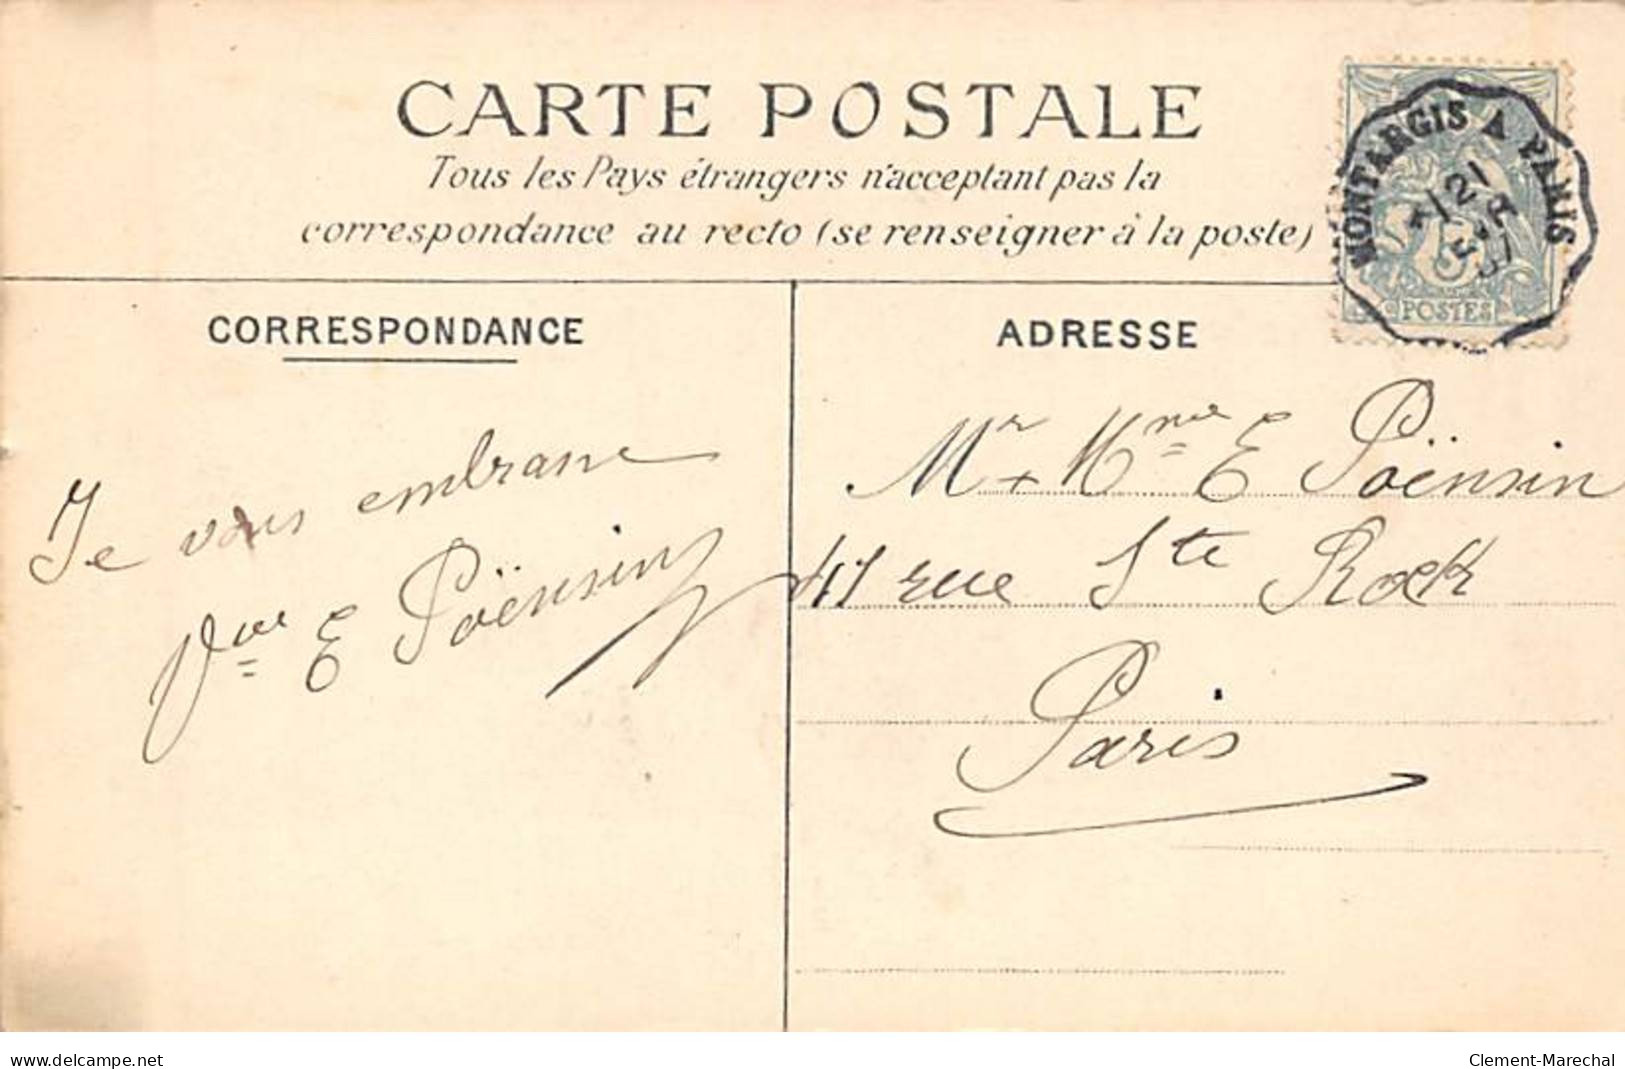 CARTE POSTALE
Tous les Pays étrangers n'acceptent pas la
correspondance au recto (se renseigner à la poste)
MONTARGIS A PARIS
21
07
5
POSTES
CORRESPONDANCE
ADRESSE
Je vous embrasse
Vve E Poënsin
Mr + Mme E Poënsin
rue Ste
Paris
www.delcampe.net
Clement-Marechal